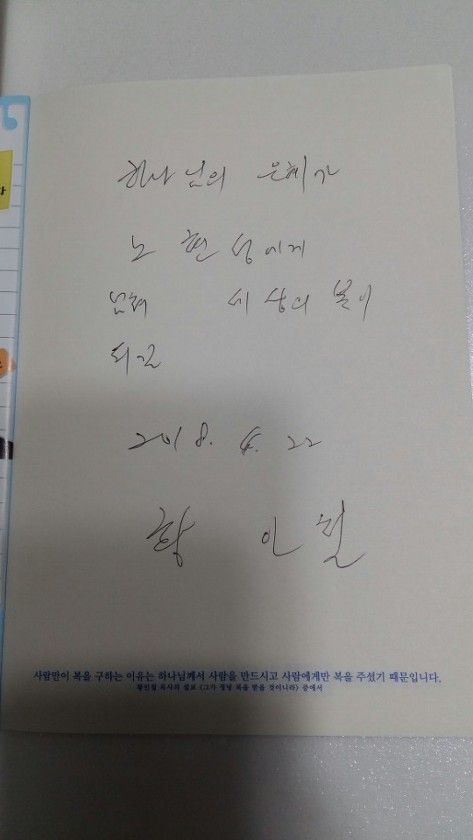 하나님의 은혜가
노 현 성에게
넘쳐 세상의 복이
되길
2018. 4. 22
황 인 철
사람만이 복을 구하는 이유는 하나님께서 사람을 만드시고 사람에게만 복을 주셨기 때문입니다.
황인철 목사의 설교 <그가 정녕 복을 받을 것이니라> 중에서